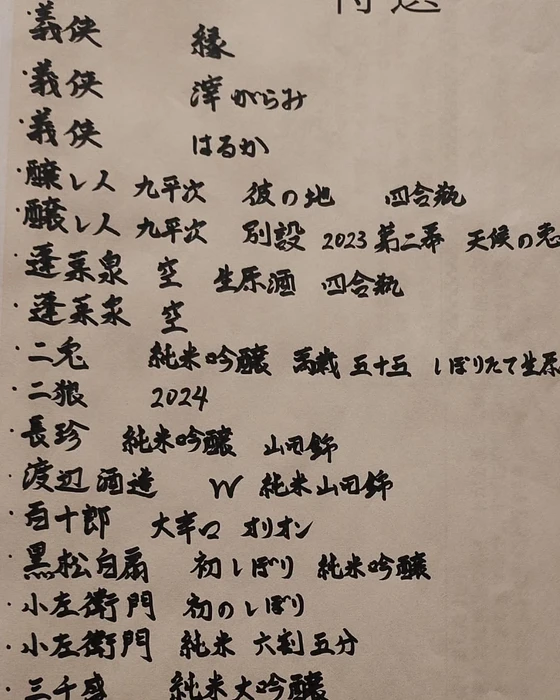 ・義侠 縁
・義侠 滓がらみ
・義侠 はるか
・醸し人 九平次 彼の地 四合瓶
・醸し人 九平次 別誂 2023 第二幕 天候の
・蓬莱泉 空 生原酒 四合瓶
・蓬莱泉 空
・二兎 純米吟醸 萬歳 五十五 しぼりたて生原
・二狼 2024
・長珍 純米吟醸 山田錦
・渡辺酒造 W 純米山田錦
・百十郎 大辛口 オリオン
・黒松白扇 初しぼり 純米吟醸
・小左衛門 初のしぼり
・小左衛門 純米 六割五分
・三千盛 純米大吟醸